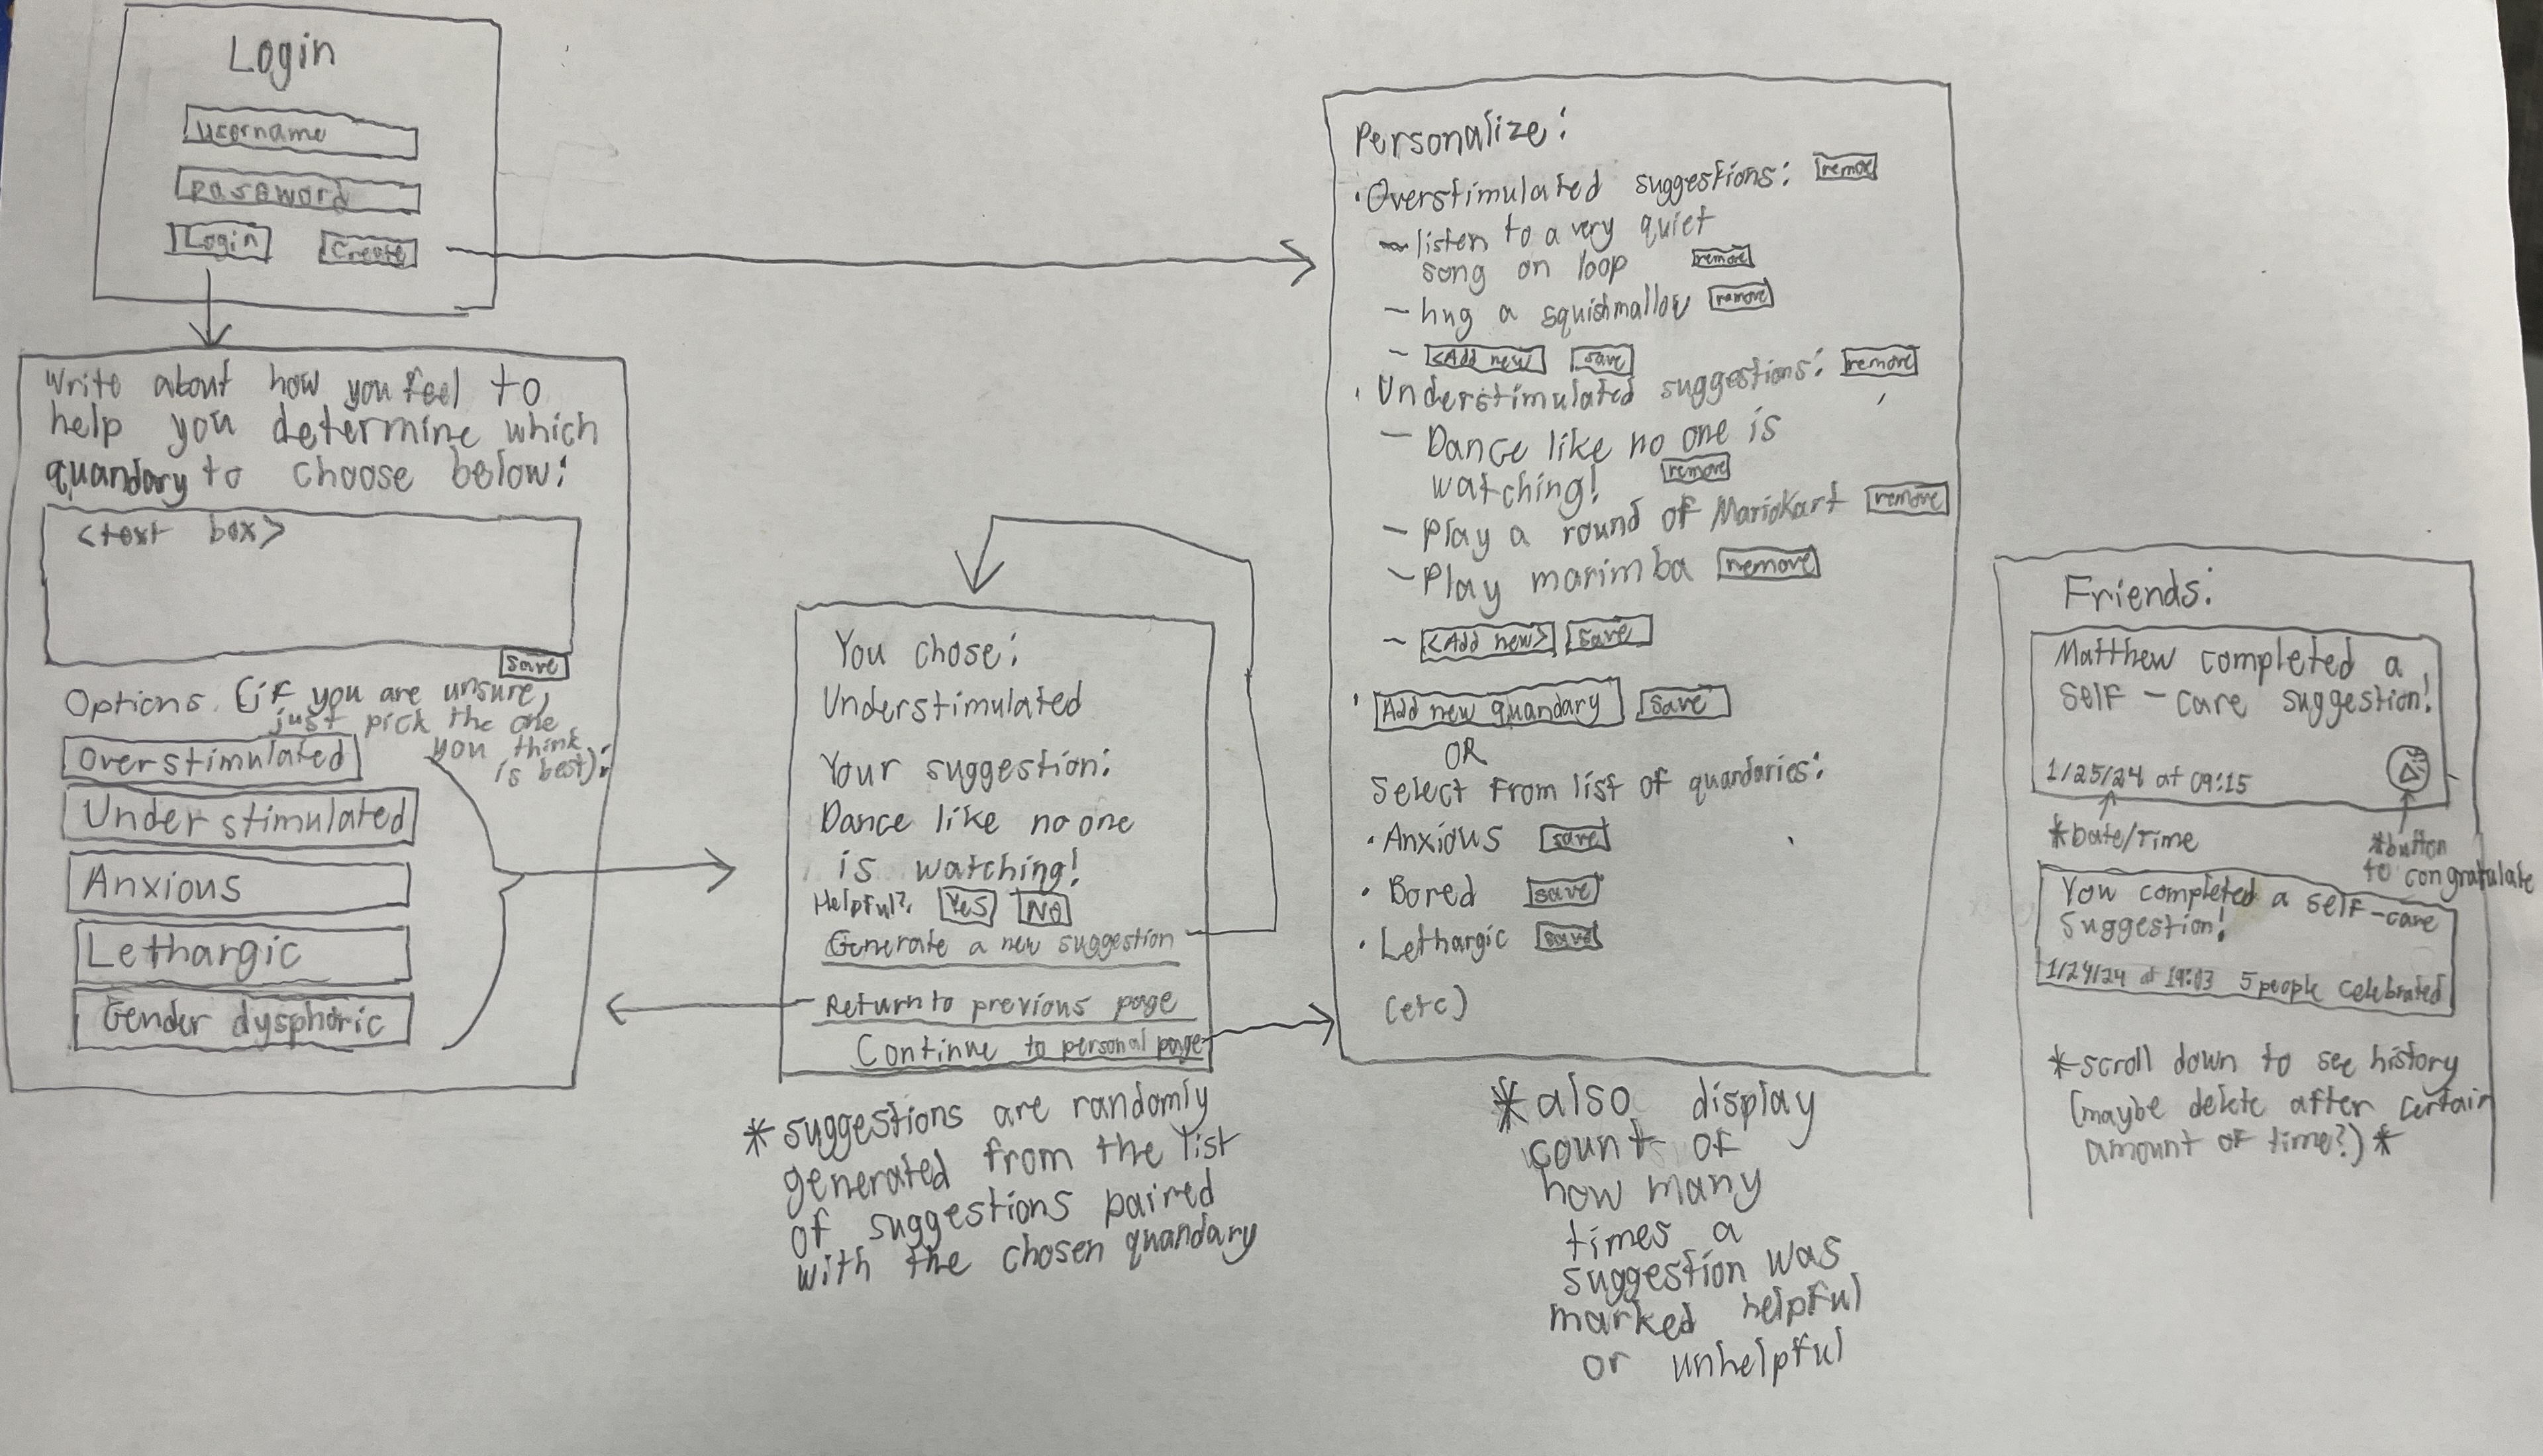 Login
username
password
Login Create
Write about how you feel to
help you determine which
quandary to choose below:
<text box>
save
Options (if you are unsure,
just pick the one
you think
is best):
Overstimulated
Understimulated
Anxious
Lethargic
Gender dysphoric
You chose:
Understimulated
Your suggestion:
Dance like no one
is watching!
Helpful? Yes NO
Generate a new suggestion
Return to previous page
Continue to personal page
*suggestions are randomly
generated from the list
of suggestions paired
with the chosen quandary
Personalize:
·Overstimulated suggestions: remove
- listen to a very quiet
song on loop remove
- hug a squishmallow remove
- <Add new> save
· Understimulated suggestions: remove
- Dance like no one is
watching! remove
- Play a round of MarioKart remove
- Play marimba remove
- <Add new> save
· Add new quandary save
OR
Select from list of quandaries:
· Anxious save
· Bored save
· Lethargic save
(etc)
*also display
count of
how many
times a
suggestion was
marked helpful
or unhelpful
Friends:
Matthew completed a
self-care suggestion!
1/25/24 at 09:15
*Date/Time
*button
to congratulate
You completed a self-care
suggestion!
1/24/24 at 19:03 5 people celebrated
*scroll down to see history
(maybe delete after certain
amount of time?)*